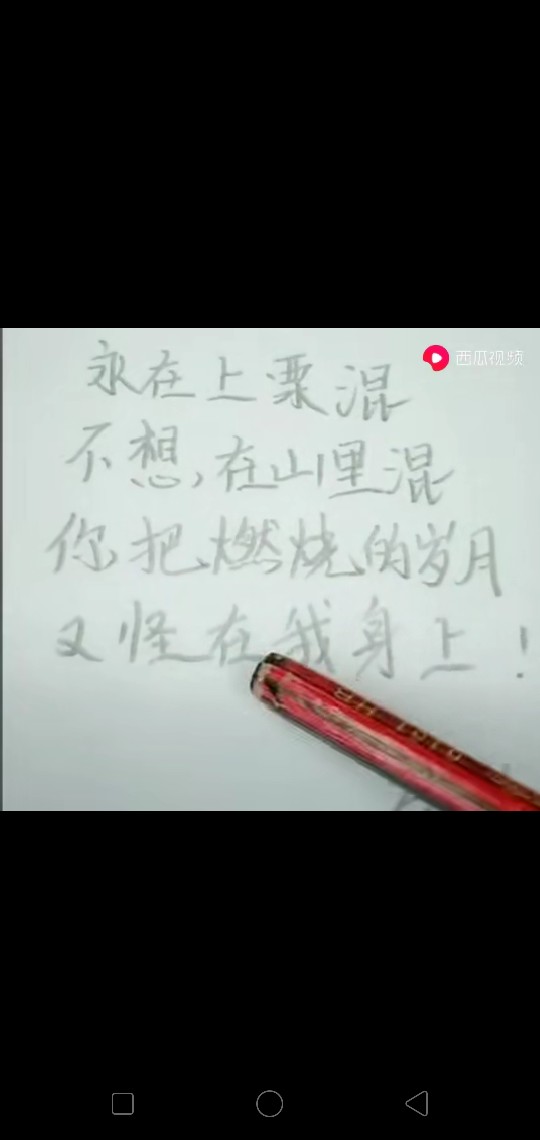 西瓜视频
永在上栗混
不想,在山里混
你把燃烧的岁月
又怪在我身上!